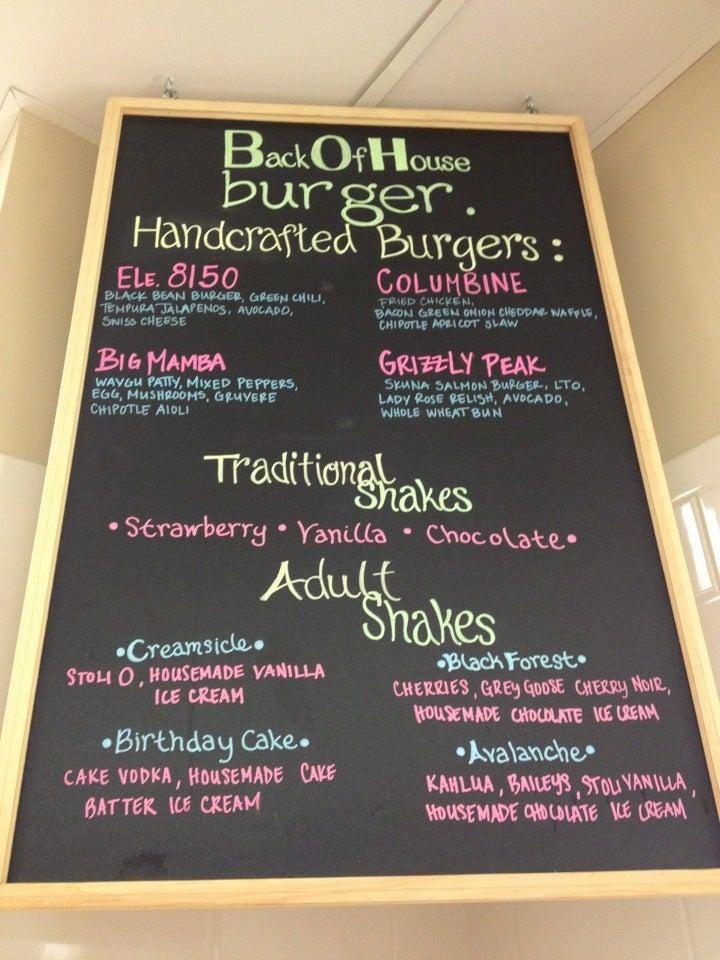 Back Of House
burger.
Handcrafted Burgers:
Ele. 8150
BLACK BEAN BURGER, GREEN CHILI,
TEMPURA JALAPENOS, AVOCADO,
SWISS CHEESE
COLUMBINE
FRIED CHICKEN,
BACON GREEN ONION CHEDDAR WAFFLE,
CHIPOTLE APRICOT SLAW
BIG MAMBA
WAYGU PATTY, MIXED PEPPERS,
EGG, MUSHROOMS, GRUYERE
CHIPOTLE AIOLI
GRIZZLY PEAK
SKUNA SALMON BURGER, LTO,
LADY ROSE RELISH, AVOCADO,
WHOLE WHEAT BUN
Traditional
Shakes
• Strawberry • Vanilla • Chocolate •
Adult
Shakes
• Creamsicle •
STOLI O, HOUSEMADE VANILLA
ICE CREAM
• Black Forest •
CHERRIES, GREY GOOSE CHERRY NOIR,
HOUSEMADE CHOCOLATE ICE CREAM
• Birthday Cake •
CAKE VODKA, HOUSEMADE CAKE
BATTER ICE CREAM
• Avalanche •
KAHLUA, BAILEYS, STOLI VANILLA,
HOUSEMADE CHOCOLATE ICE CREAM